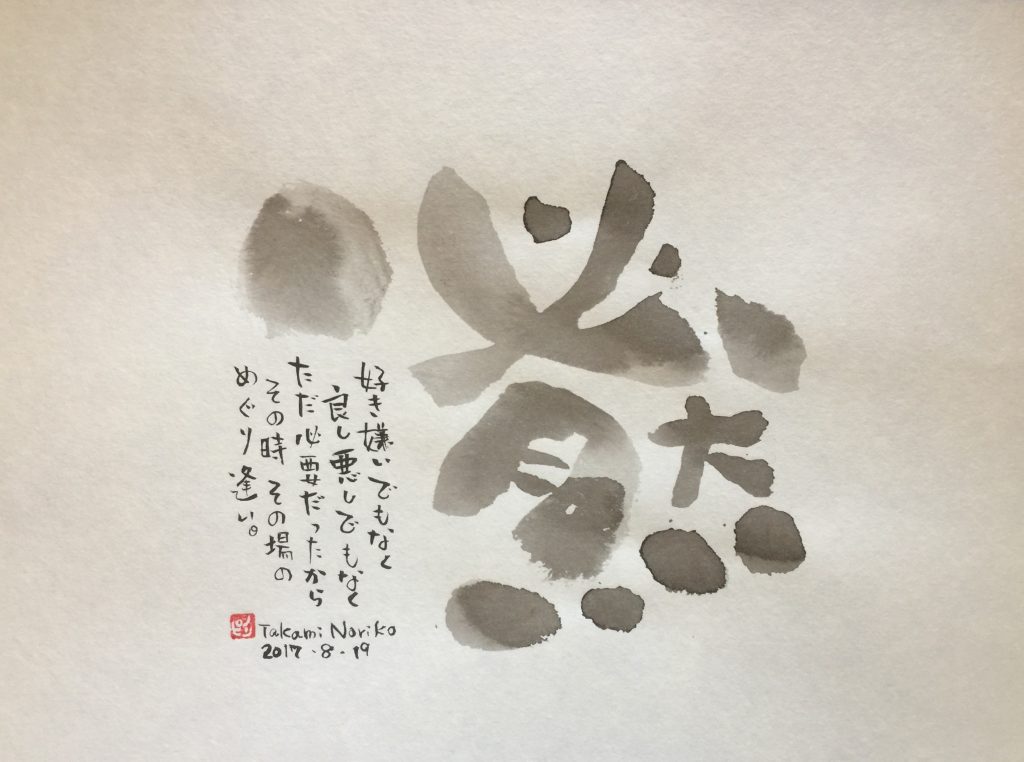 必然
好き嫌いでもなく
良し悪しでもなく
ただ必要だったから
その時 その場の
めぐり逢い。
Takami Noriko
2017・8・19